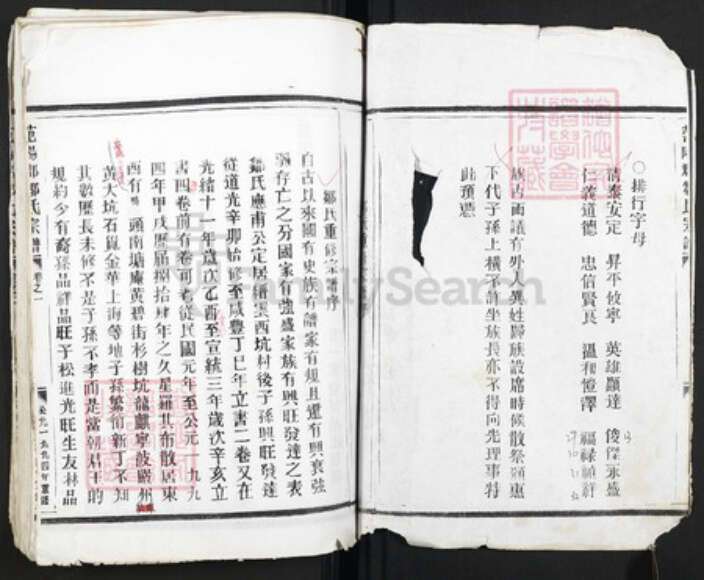 ○排行字母
清泰安定　昇平攸寧　英雄顯達　俊傑永盛
仁義道德　忠信賢良　溫和愷澤　福祿禎祥
族古面議有外人異姓歸族設席時候散祭領惠
下代子孫上橫不許坐族長亦不得向先理事特
此預憑
鄒氏重修宗譜序
自古以來國有史族有譜家有規且還有興衰強
弱存亡之分國家有強盛家族有興旺發達之表
鄒氏應甫公定居縉雲西坑村後子孫興旺發達
從道光辛卯始修至咸豐丁巳年立書二卷又在
光緒十一年歲次乙酉至宣統三年歲次辛亥立
書四卷前有卷可考從民國元年至公元一九九
四年甲戌歷屆捌拾肆年之久星羅其布散居東
西有　頭南塘庵黃碧街杉樹坑龍麒寧波嚴州
黃大坑石 金華上海等地子孫繁衍新丁不知
其數歷長未修不是子孫不孝而是當朝 的
規約少有裔孫品祥品旺于松進光旺生友林品
鄒氏宗譜
卷之一
公元一九九四年重修
FamilySearch